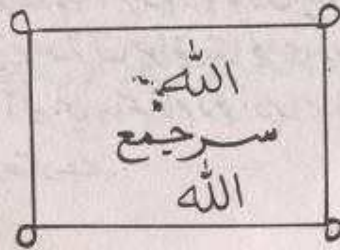 الله
سرجيع
الله